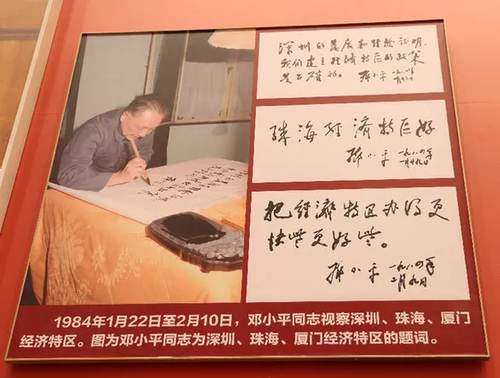 深圳的发展和经验证明，
我们建立经济特区的政策
是正确的。
邓小平
珠海经济特区好
邓小平
一九八四年
一月廿九日
把经济特区办得更
快些更好些。
邓小平
一九八四年
二月九日
1984年1月22日至2月10日，邓小平同志视察深圳、珠海、厦门
经济特区。图为邓小平同志为深圳、珠海、厦门经济特区的题词。